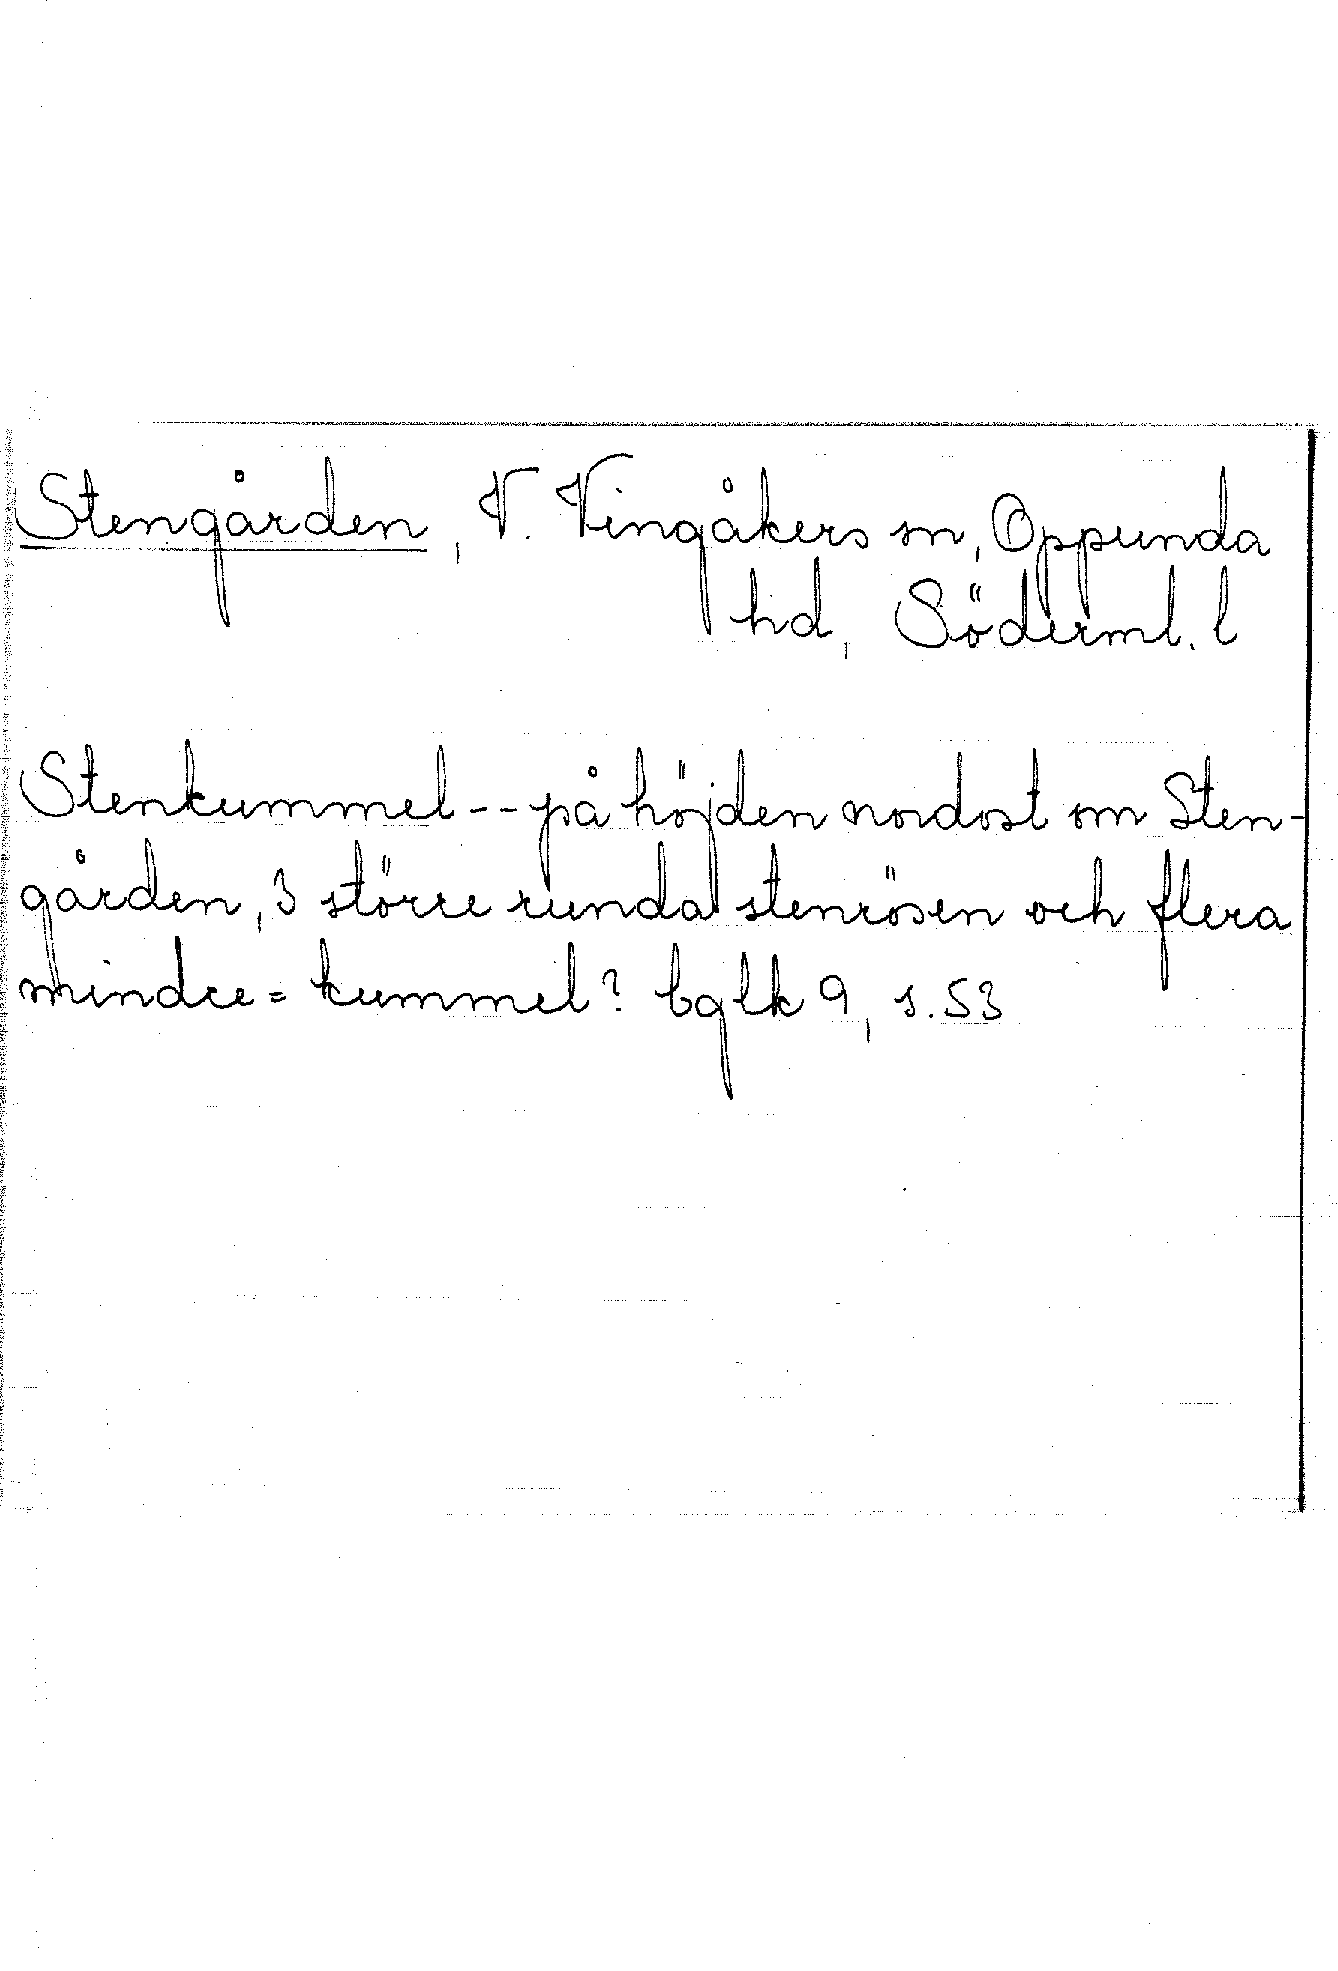 Stengården, V. Vingåkers sn, Oppunda
hd, Söderml. l
Stenkummel -- på höjden nordost om Sten-
gården, 3 större runda stenrösen och flera
mindre = kummel? bglk 9, s. 53